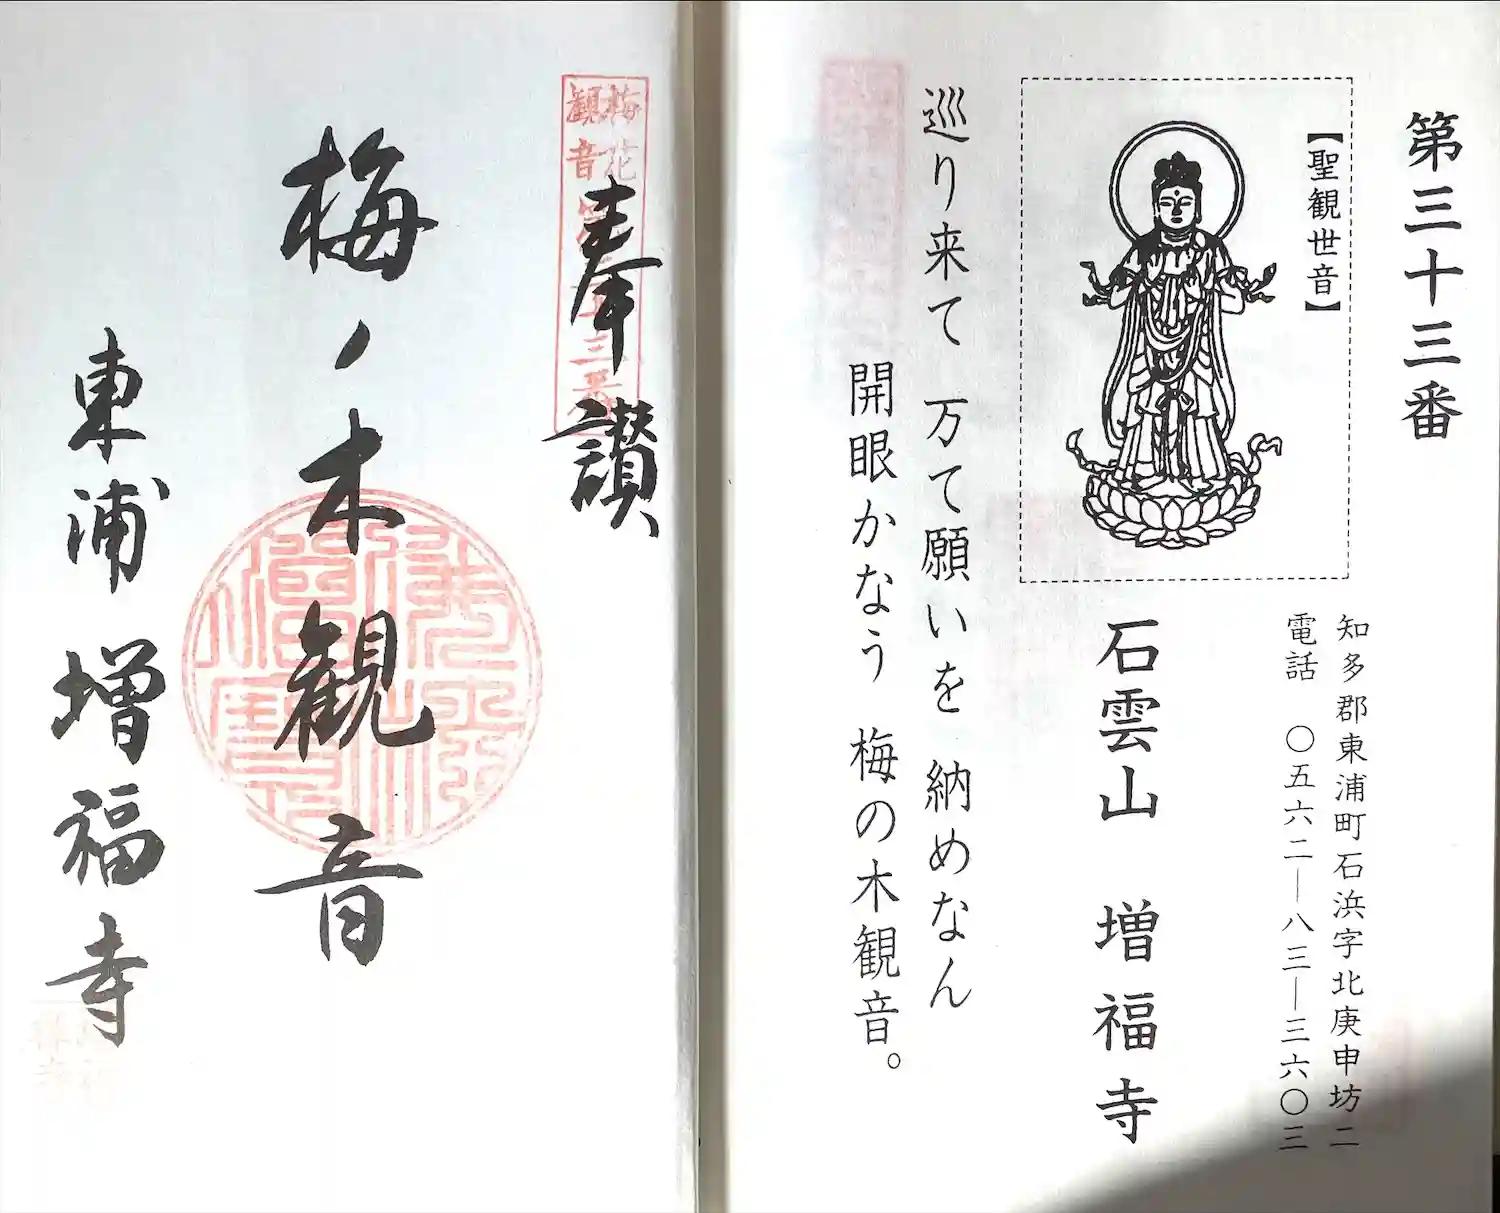 第三十三番
【聖観世音】
知多郡東浦町石浜字北庚申坊二
電話 〇五六二―八三―三六〇三
石雲山 増福寺
巡り来て 万て願いを 納めなん
開眼かなう 梅の木観音。
梅花
観音
第三十三番
奉讃
梅ノ木観音
東浦 増福寺